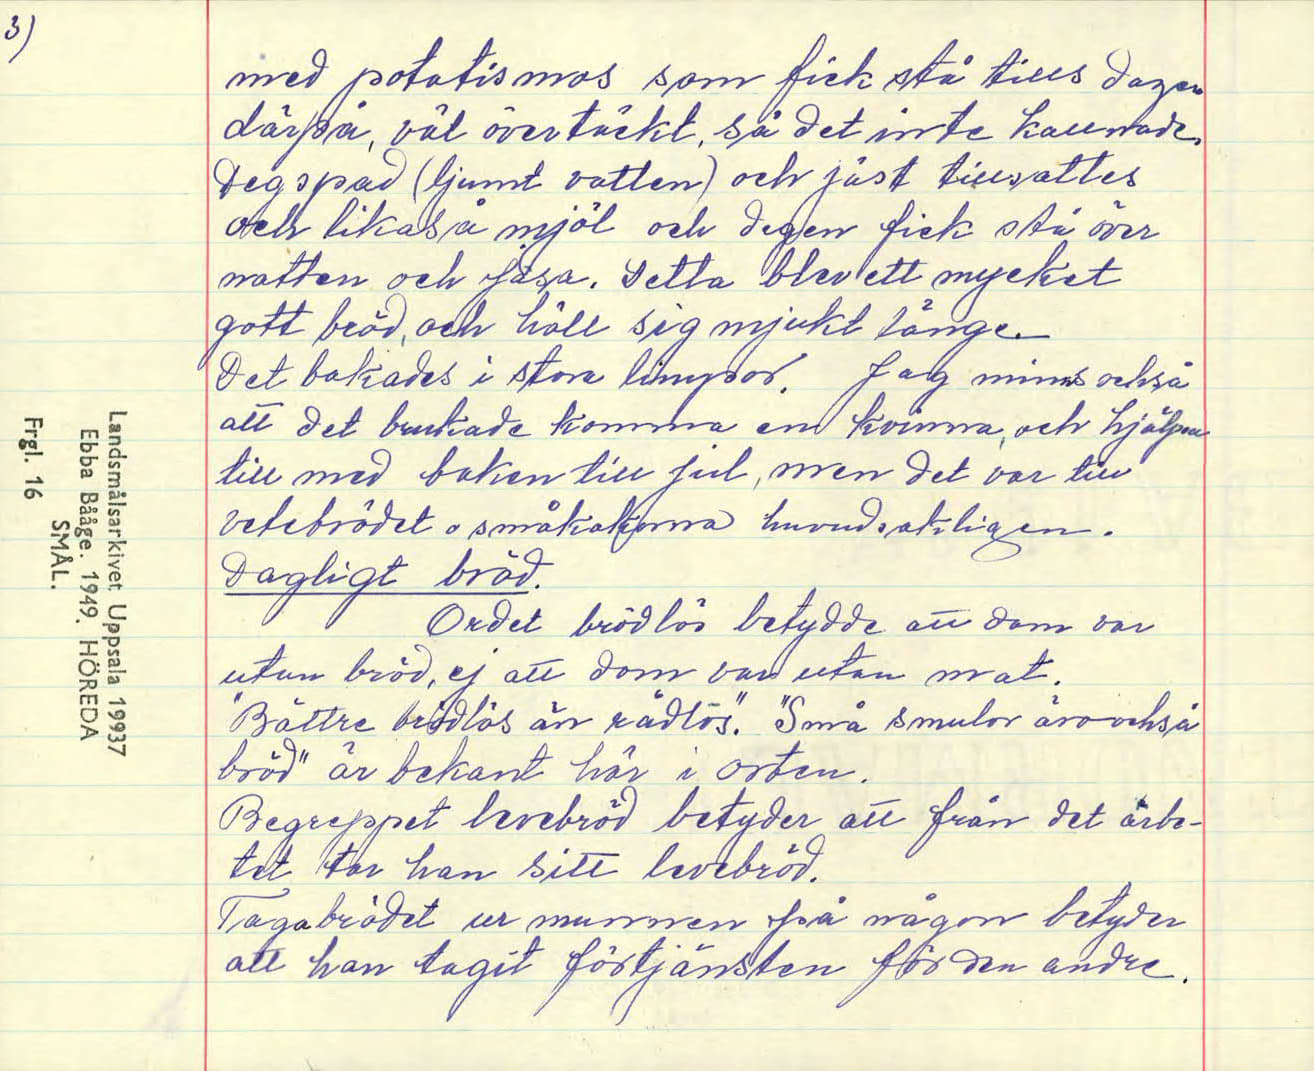 3)
med potatismos som fick stå tills dagen
därpå, väl övertäckt, så det inte kallnade.
Degspad (ljumt vatten) och jäst tillsattes
och likaså mjöl och degen fick stå över
natten och jäsa. Detta blev ett mycket
gott bröd, och höll sig mjukt länge.
Det bakades i stora limpor. Jag minns också
att det brukade komma en kvinna och hjälpa
till med baken till jul, men det var till
vetebrödet o småkakorna huvudsakligen.
Dagligt bröd.
Ordet brödlös betydde att dom var
utan bröd, ej att dom var utan mat.
"Bättre brödlös än rådlös". "Små smulor äro också
bröd" är bekant här i orten.
Begreppet levebröd betyder att från det arbe-
tet tar han sitt levebröd.
Taga brödet ur munnen på någon betyder
att han tagit förtjänsten för den andre.
Landsmålsarkivet Uppsala 19937
Ebba Bååge. 1949. HÖREDA
SMÅL.
Frgl. 16